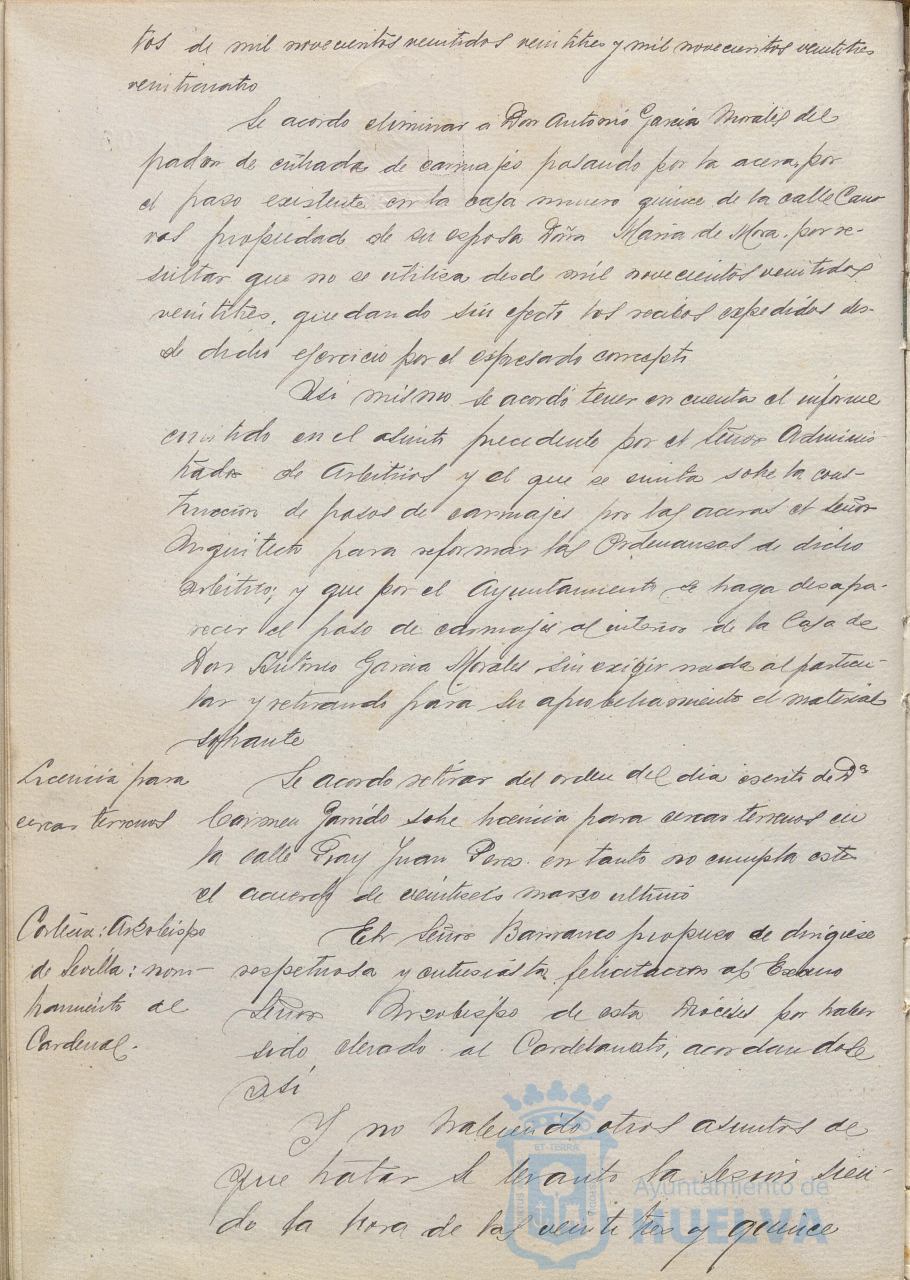 tos de mil novecientos veintidos veintitres y mil novecientos veintitres
veinticuatro
Se acordo eliminar a Don Antonio Garcia Morales del
padron de entrada de carruajes pasando por la acera, por
el paso existente en la casa numero quince de la calle Cano
vas propiedad de su esposa Doña Maria de Mora, por re-
sultar que no se utiliza desde mil novecientos veintidos
veintitres, quedando sin efecto los recibos expedidos des-
de dicho ejercicio por el expresado concepto
Asi mismo se acordó tener en cuenta el informe
emitido en el asunto precedente por el Señor Adminis-
trador de Arbitrios y el que se emita sobre la cons-
truccion de pasos de carruajes por las aceras el señor
Arquitecto para reformar las Ordenanzas de dicho
arbitrio; y que por el Ayuntamiento se haga desapa-
recer el paso de carruajes al interior de la Casa de
Don Antonio Garcia Morales sin exigir nada al particu-
lar y retirando para su aprobechamiento el material
sobrante
Licencia para
cercar terrenos
Se acordo retirar del orden del dia escrito de Dª
Carmen Garrido sobre licencia para cercar terrenos en
la calle Fray Juan Perez en tanto no cumpla este
el acuerdo de veintiseis marzo ultimo
Cortesia: Arzobispo
de Sevilla: nom-
bramiento de
Cardenal.
El Señor Barranco propuso se dirigiese
respetuosa y entusiasta felicitacion al Excmo
Señor Arzobispo de esta Diócisis por haber
sido elevado al Cardelanato, acordandose
asi
Y no habiendo otros asuntos de
que tratar se levanto la sesion sien-
do la hora de las veintitres y quince
ET TERRÆ
Ayuntamiento de
HUELVA